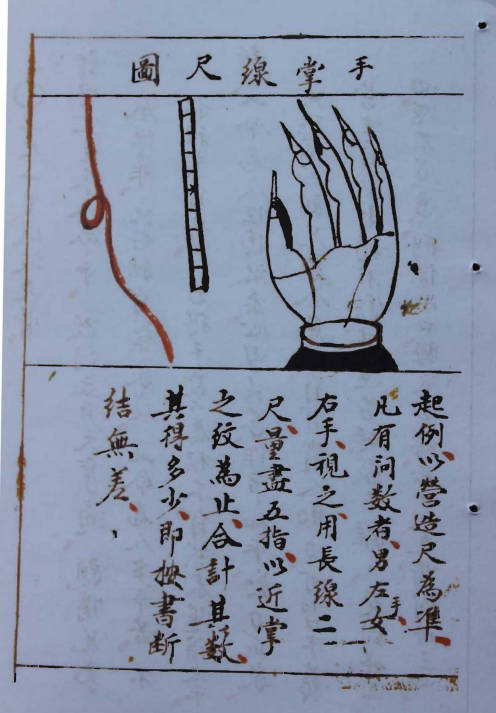 手掌線尺圖
起例、以營造尺為準、
凡有问数者、男左手女
右手、視之、用長線二
尺、量盡五指、以近掌
之纹為止、合計其数、
其得多少、即按書断
结無差、